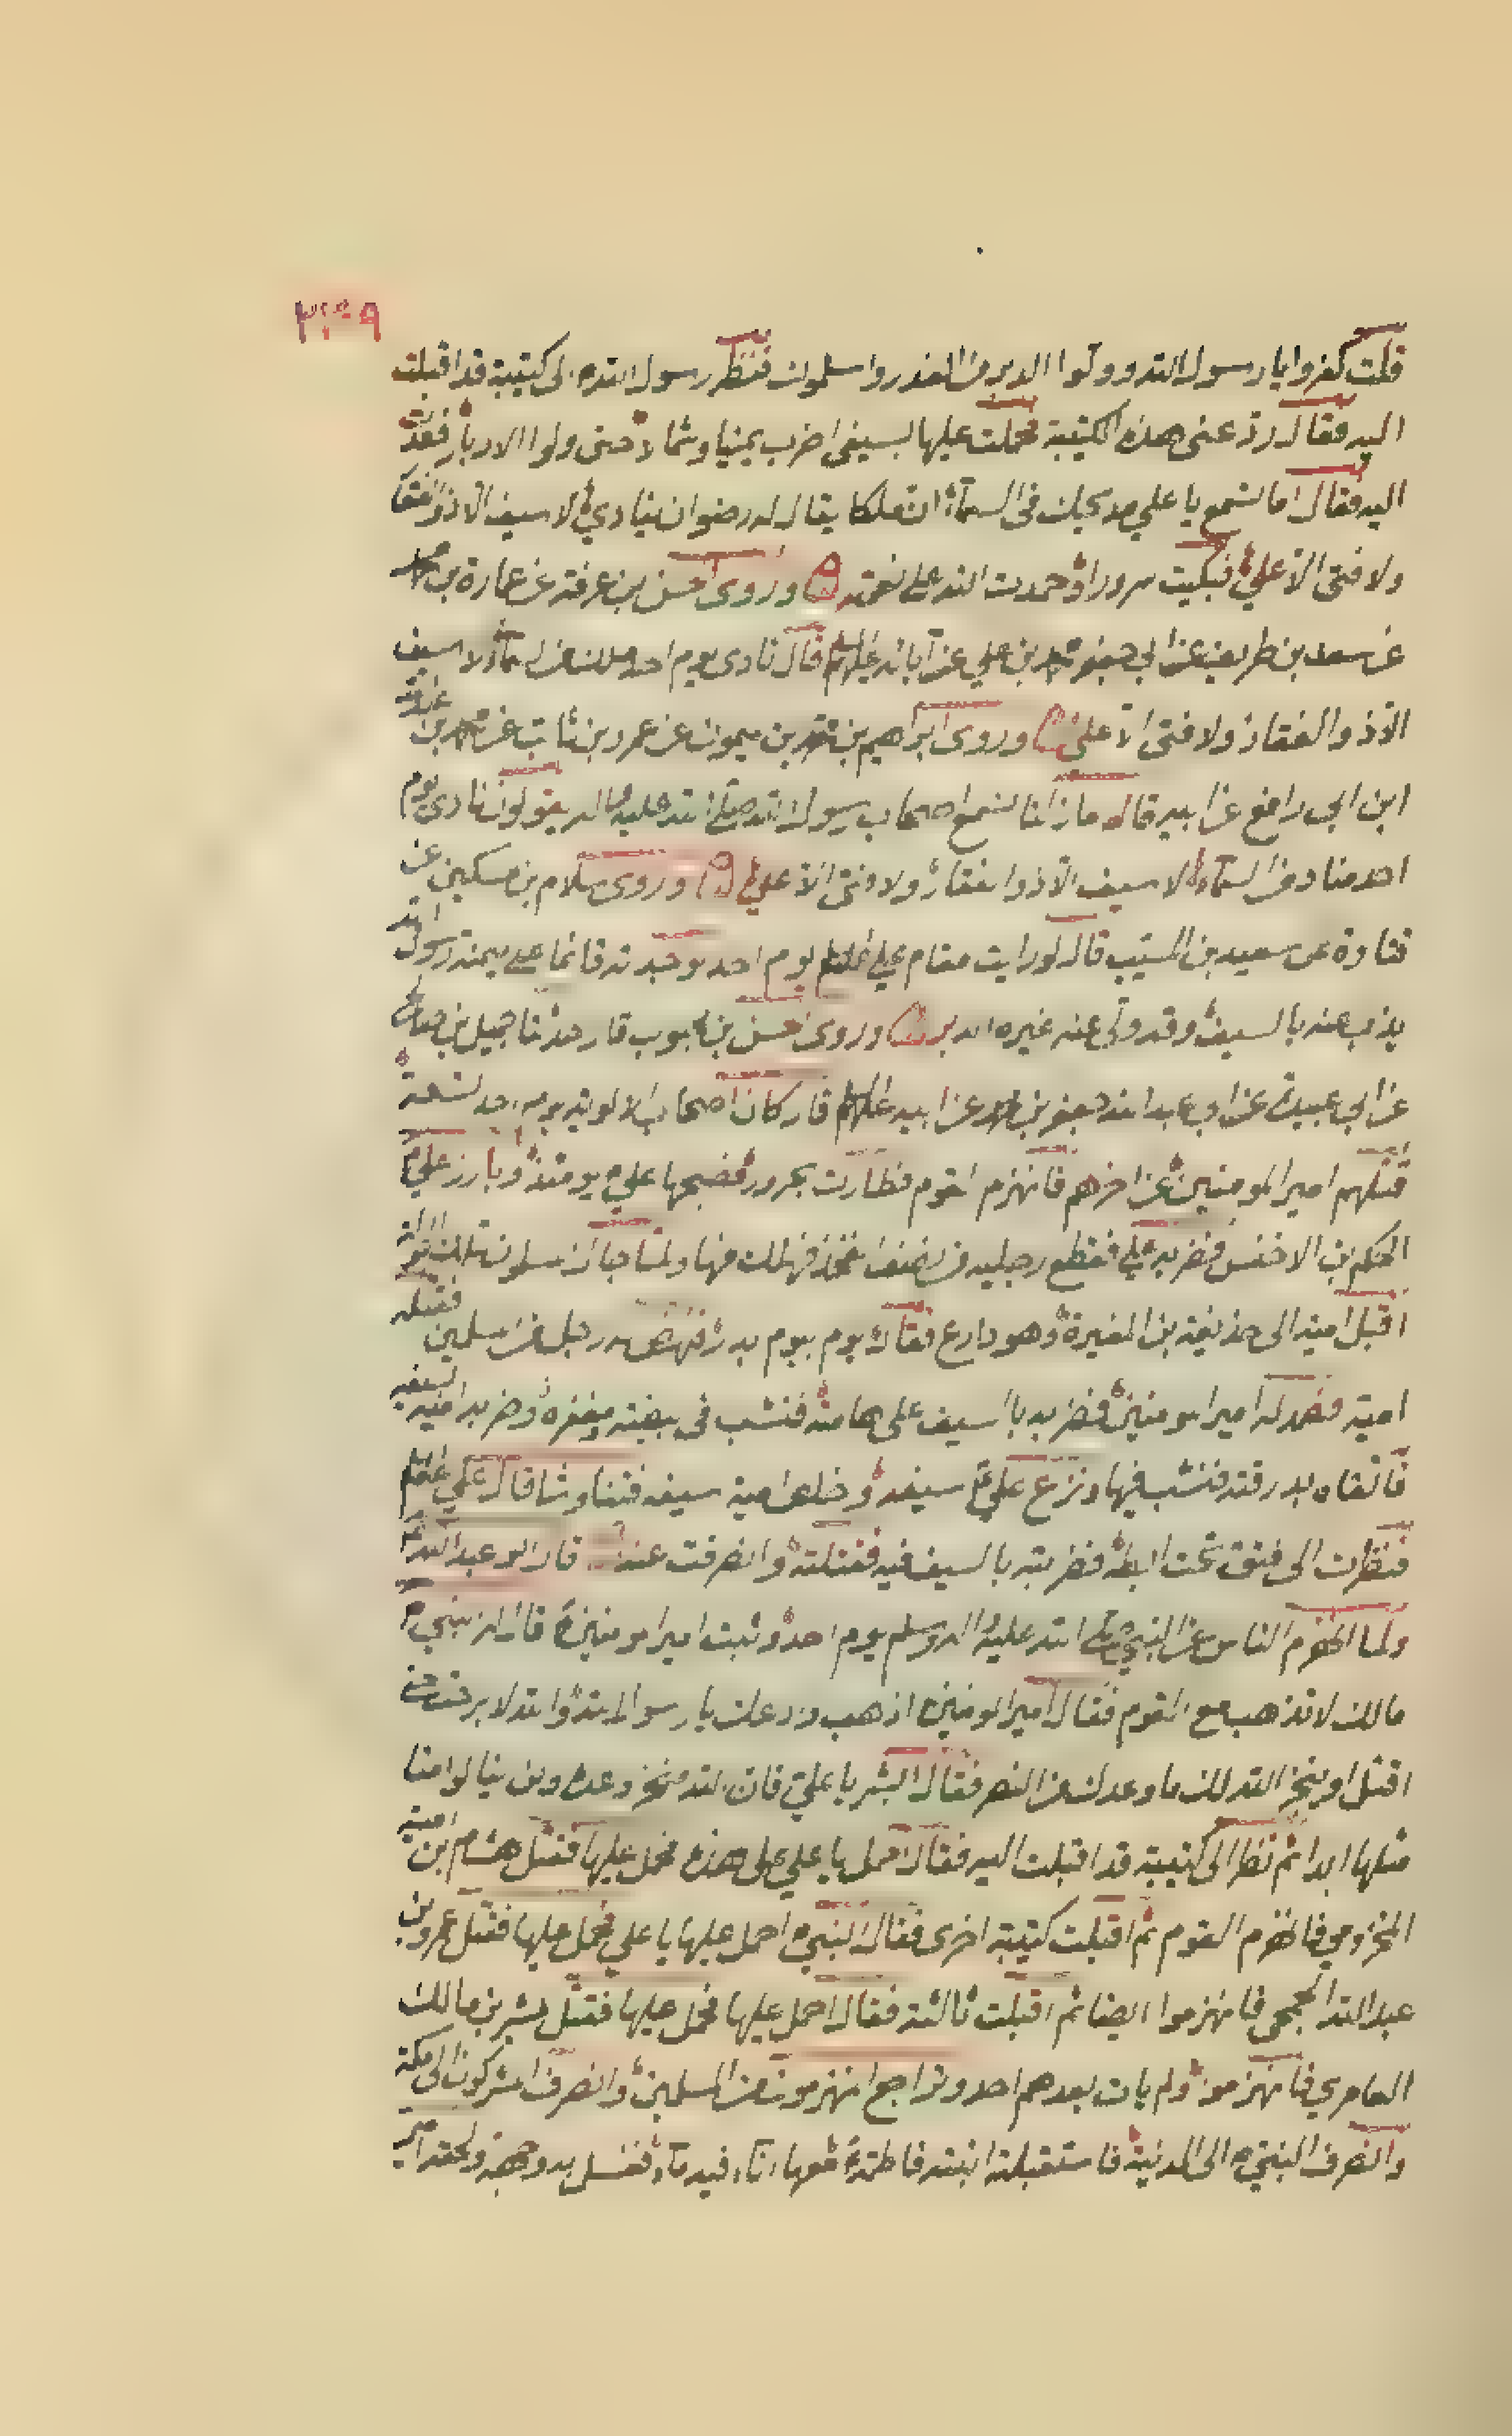 ٣٣٩
قلت كفروا يا رسول الله وولوا الدبر من العدو واسلموك فنظر رسول الله الى كتيبة قد اقبلت
اليه فقال رد عني هذه الكتيبة فحملت عليها بسيفي اضرب يمينا وشمالا حتى ولوا الادبار فقال
اليه فقال اما تسمع يا علي مديحك في السماء ان ملكا يقال له رضوان ينادي لا سيف الا ذو الفقار
ولا فتى الا علي فبكيت سرورا وحمدت الله على نعمته وروى الحسن بن عرفة عن عمارة بن محمد
عن سعد بن طريف عن ابي جعفر محمد بن علي عن آبائه عليهم السلم قال نادى يوم احد ملك من السماء لا سيف
الا ذو الفقار ولا فتى الا علي وروى ابراهيم بن محمد بن ميمون عن عمرو بن ثابت عن محمد بن عبيد الله
ابن ابي رافع عن ابيه قال ما زلنا نسمع اصحاب رسول الله صلى الله عليه واله يقولون نادى يوم
احد مناد من السماء لا سيف الا ذو الفقار ولا فتى الا علي وروى سلام بن مسكين عن
قتادة عن سعيد بن المسيب قال لو رايت مقام علي عليه السلم يوم احد لوجدته قائما على ميمنة رسول الله
يذب عنه بالسيف وقد ولى عنه غيره الادبار وروى الحسن بن محبوب قال حدثنا جميل بن صالح
عن ابي عبيدة عن ابي عبد الله جعفر بن محمد عن ابيه عليهم السلم قال كان اصحاب الالوية يوم احد تسعة
قتلهم امير المومنين عن اخرهم فانهزم القوم وطارت مخزوم فضحها علي يومئذ وبارز علي
الحكم بن الاخنس فضربه علي فقطع رجليه من نصف الفخذ فهلك منها ولما جال المسلمون تلك الجولة
اقبل امية الى حذيفة بن المغيرة وهو دارع فقال يوم بيوم بدر فعرض له رجل من المسلمين فقتله
امية فصمد له امير المومنين فضربه بالسيف على هامته فنشب في بيضة مغفره وضربه امية بسيفه
فاتقاه بدرقته فنشب فيها ونزع علي سيفه وخلص امية سيفه فتناوشا قال علي عليه السلم
فنظرت الى فتق تحت ابطه فضربته بالسيف فيه فقتلته وانصرفت عنه قال ابو عبد الله
ولما انهزم الناس عن النبي صلى الله عليه واله وسلم يوم احد وثبت امير المومنين قال له النبي
مالك لا تذهب مع القوم فقال امير المومنين اذهب وادعك يا رسول الله والله لا برحت حتى
اقتل او ينجز الله لك ما وعدك من النصر فقال ابشر يا علي فان الله منجز وعده ولن ينالوا منا
مثلها ابدا ثم نظر الى كتيبة قد اقبلت اليه فقال احمل يا علي على هذه فحمل عليها فقتل هشام بن امية
المخزومي فانهزم القوم ثم اقبلت كتيبة اخرى فقال النبي احمل عليها يا علي فحمل عليها فقتل عمرو بن
عبد الله الجمحي فانهزموا ايضا ثم اقبلت ثالثة فقال احمل عليها فحمل عليها فقتل بشر بن مالك
العامري فانهزموا ولم يات بعدهم احد وتراجع المنهزمون من المسلمين وانصرف المشركون الى مكة
وانصرف النبي الى المدينة فاستقبلته ابنته فاطمة معها اناء فيه ماء فغسل به وجهه ولحقه امير